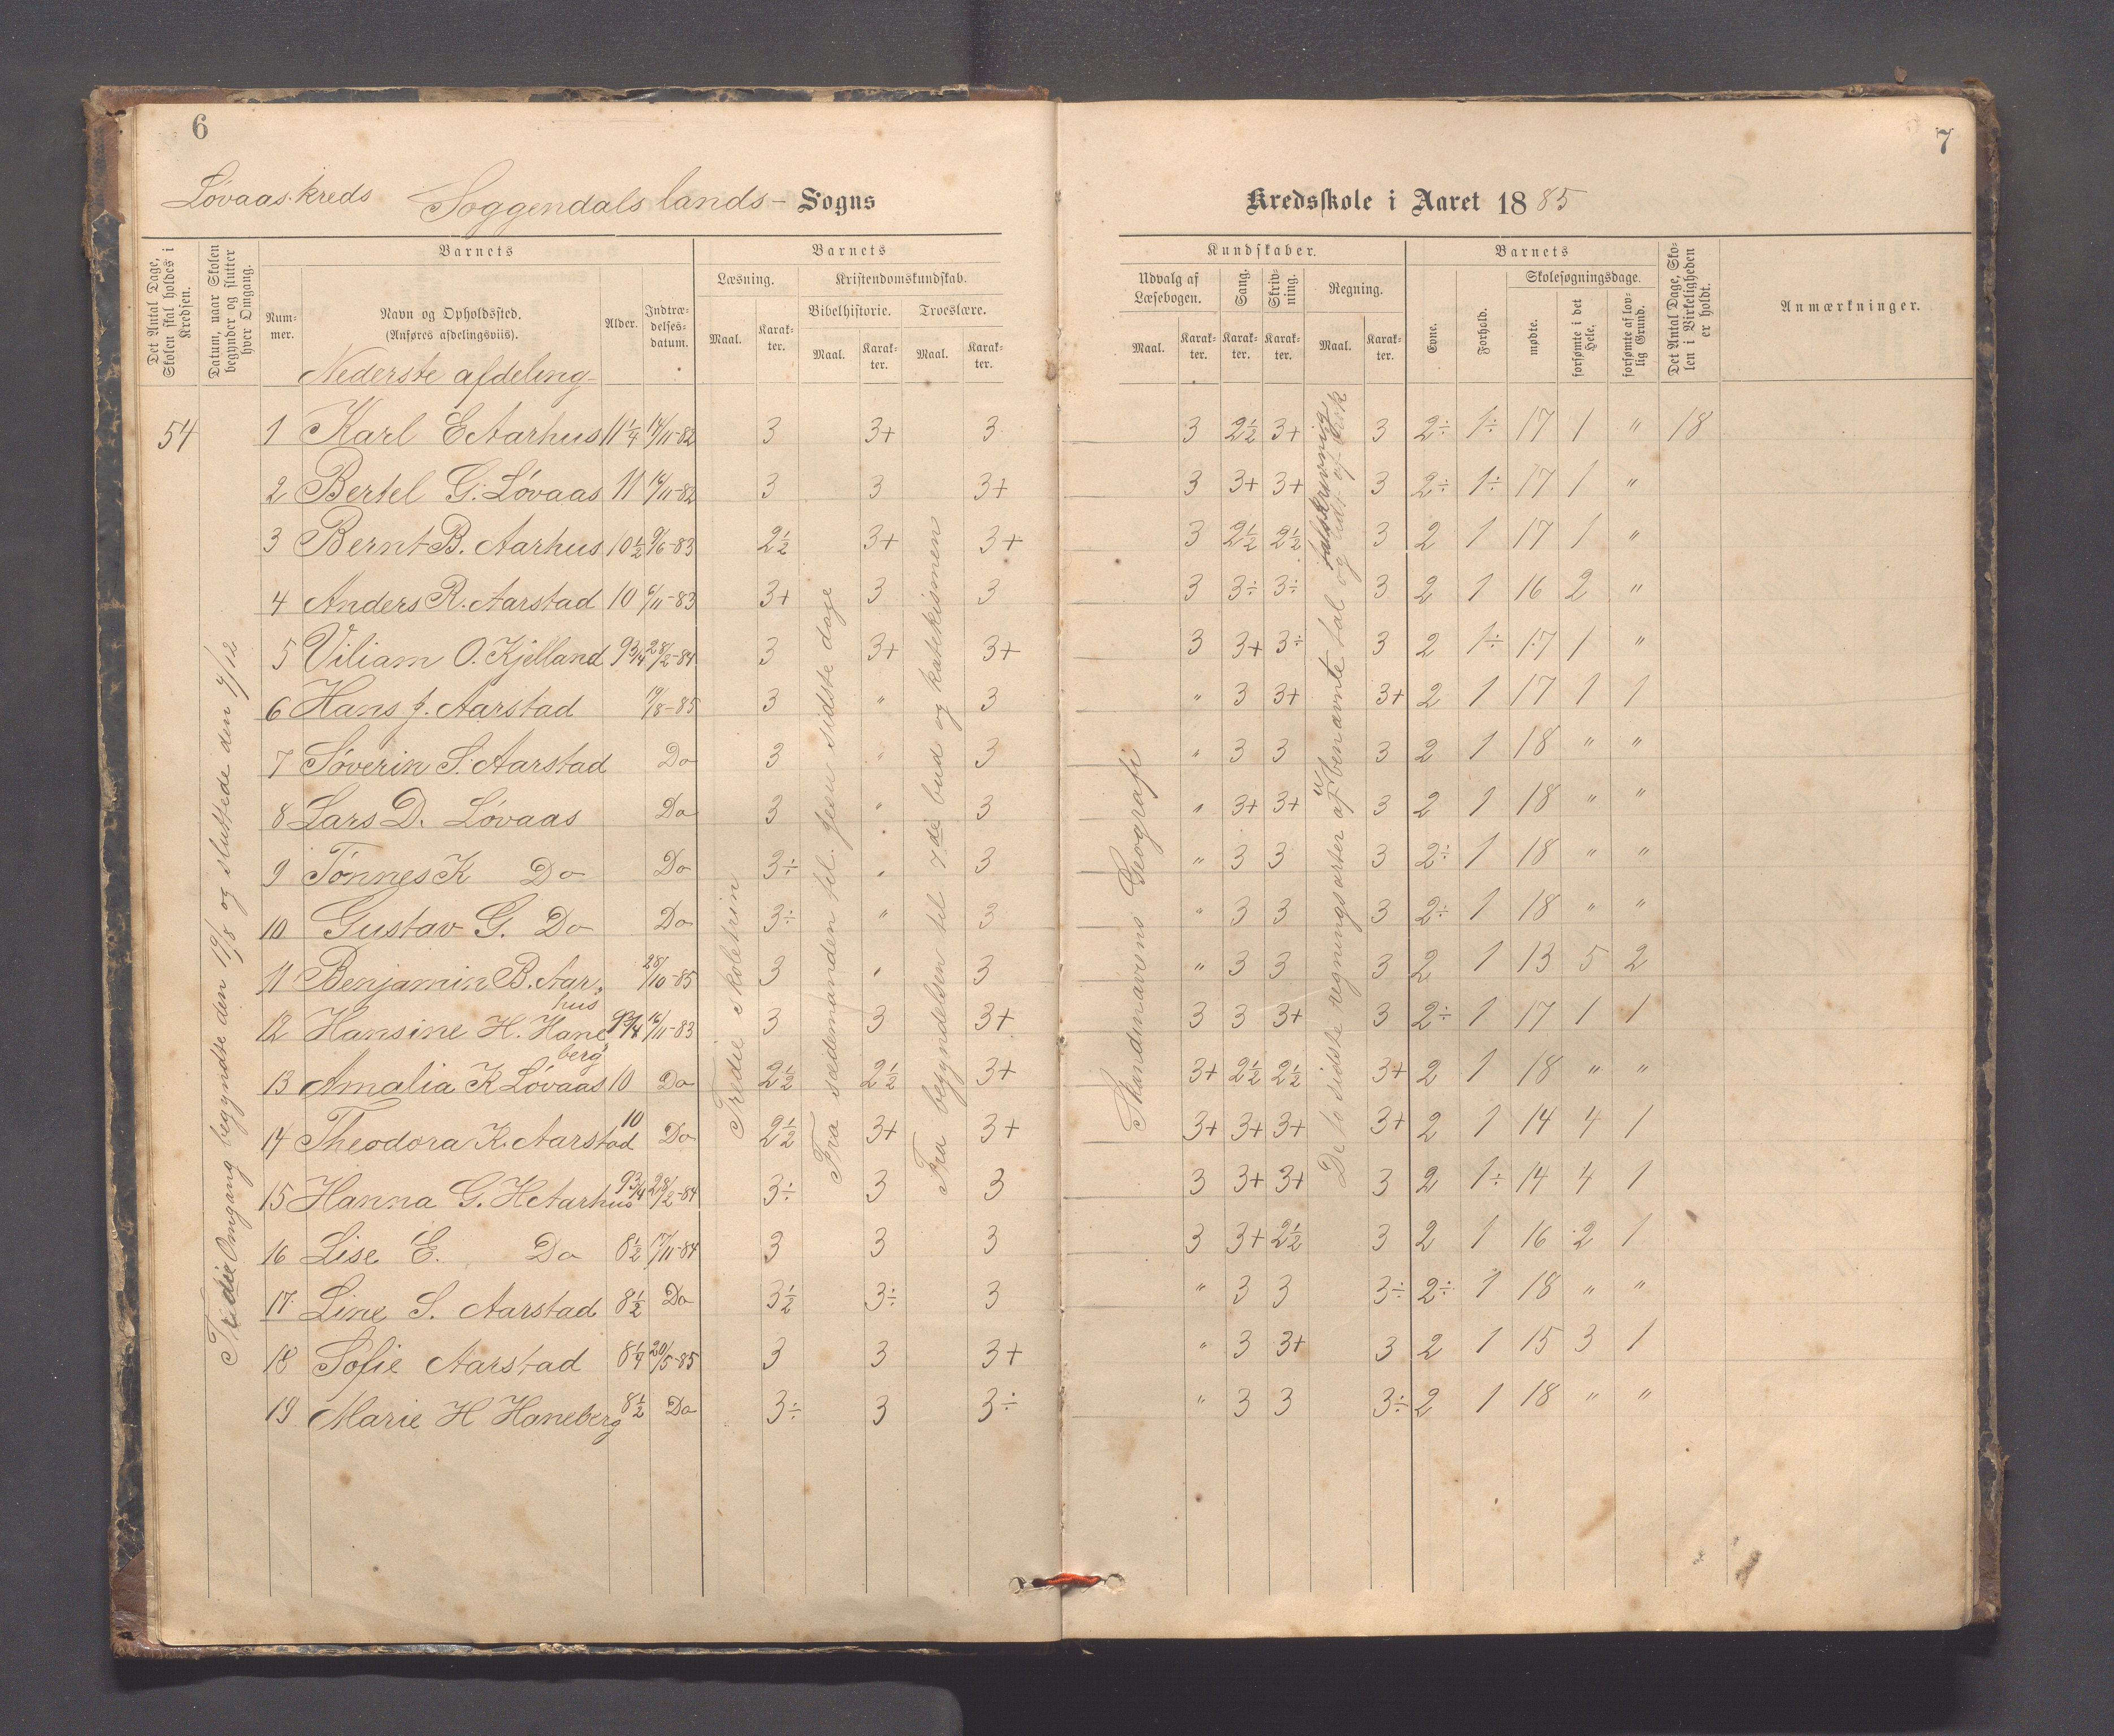 6
7
Løvaas kreds Soggendals lands- Sogns
Kredsskole i Aaret 1885
Det Antal Dage, Skolen skal holdes i Kredsen.
Datum, naar Skolen begynder og slutter hver Omgang.
Barnets
Nummer.
Navn og Opholdssted.
(Anføres afdelingsviis).
Alder.
Indtrædelsesdatum.
Barnets
Læsning.
Kristendomskundskab.
Bibelhistorie.
Troeslære.
Maal. Karakter. Maal. Karakter. Maal. Karakter.
Kundskaber.
Udvalg af Læsebogen.
Sang.
Skrivning.
Regning.
Maal. Karakter. Karakter. Karakter. Maal. Karakter.
Barnets
Evne.
Forhold.
Skolesøgningsdage.
mødte.
forsømte i det Hele.
forsømte af lovlig Grund.
Det Antal Dage, Skolen i Virkeligheden er holdt.
Anmærkninger.
Nederste afdeling
54 1 Karl E Aarhus 11 1/4 14/11-82 3 3+ 3 3 2 1/2 3+ 3 2÷ 1÷ 17 1 " 18
2 Bertel G. Løvaas 11 14/11-82 3 3 3+ 3 3+ 3+ 3 2÷ 1÷ 17 1 "
3 Bernt B. Aarhus 10 1/2 9/6-83 2 1/2 3+ 3+ 3 2 1/2 2 1/2 3 2 1 17 1 "
4 Anders R. Aarstad 10 6/11-83 3+ 3 3 3 3÷ 3÷ 3 2 1 16 2 "
5 Viliam O. Kjelland 9 3/4 28/2-84 3 3+ 3+ 3 3+ 3÷ 3 2 1÷ 17 1 "
6 Hans J. Aarstad 19/8-85 3 " 3 " 3 3+ 3+ 2 1 17 1 1
7 Søverin S. Aarstad Do 3 " 3 " 3 3 3 2 1 18 " "
8 Lars D. Løvaas Do 3 " 3 " 3+ 3+ 3 2 1 18 " "
9 Tønnes K Do Do 3÷ " 3 " 3 3 3 2÷ 1 18 " "
10 Gustav G. Do Do 3÷ " 3 " 3 3 3 2÷ 1 18 " "
11 Benjamin B. Aarhus 28/10-85 3 " 3 " 3 3 3 2 1 13 5 2
12 Hansine H. Haneberg 9 3/4 16/11-83 3 3 3+ 3 3 3+ 3 2÷ 1 17 1 1
13 Amalia K Løvaas 10 Do 2 1/2 2 1/2 3+ 3+ 2 1/2 2 1/2 3+ 2 1 18 " "
14 Theodora K. Aarstad 10 Do 2 1/2 3+ 3+ 3+ 3+ 3+ 3+ 2 1 14 4 1
15 Hanna G. H Aarhus 9 3/4 28/2-84 3÷ 3 3 3 3+ 3+ 3 2 1÷ 14 4 1
16 Lise E. Do 8 1/2 17/11-84 3 3 3 3 3+ 2 1/2 3 2 1 16 2 1
17 Line S. Aarstad 8 1/2 Do 3 1/2 3÷ 3 " 3 3 3÷ 2÷ 1 18 " "
18 Sofie Aarstad 8 1/4 20/5-85 3 3 3+ " 3 3+ 3 2 1 15 3 1
19 Marie H Haneberg 8 1/2 Do 3÷ 3 3÷ " 3 3 3÷ 2 1 18 " "
Tredie Omgang begyndte den 19/8 og sluttede den 4/12
Tredie skoletrin
Fra sædemanden til Jesu sidste dage
Fra begyndelsen til 7de bud og katekismen
Skandinaviens Geografi
De to sidste regningsarter af ubenævnte tal og
talskrivning